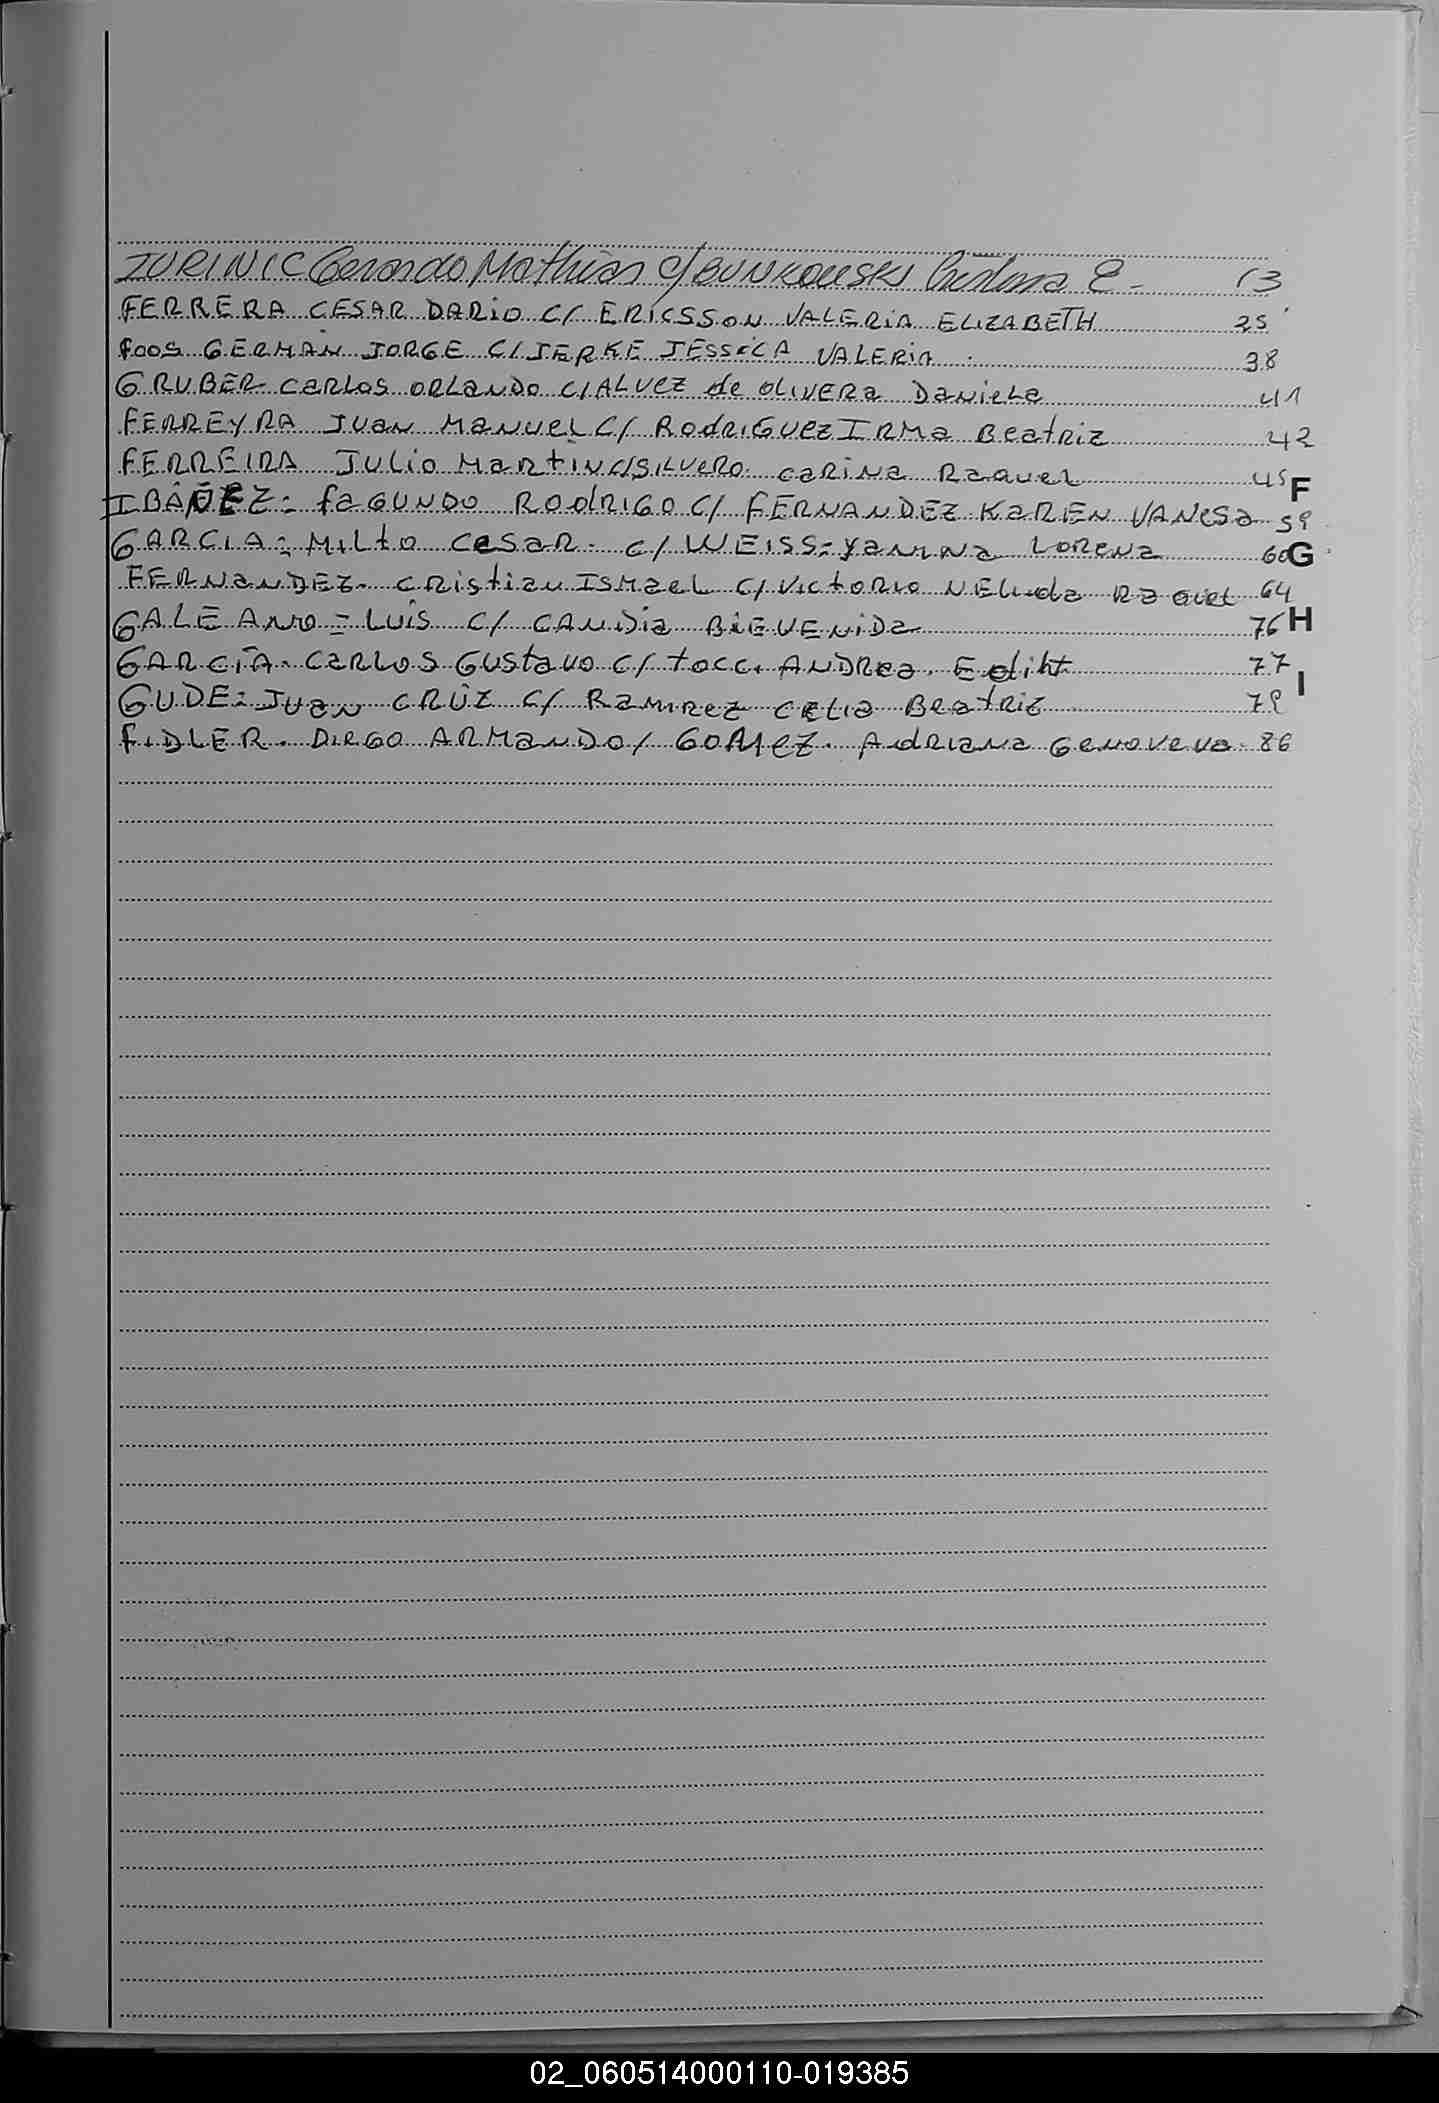 IURINIC Gerardo Mathias c/ BUNKOUSKI E - 13
FERRERA CESAR DARIO C/ ERICSSON VALERIA ELIZABETH 25
FOOS GERMAN JORGE C/ JERKE JESSICA VALERIA . 38
GRUBER CARLOS ORLANDO C/ ALVEZ de OLIVERA DANIELA 41
FERREYRA JUAN MANUEL C/ RODRIGUEZ IRMA BEATRIZ 42
FERREIRA JULIO MARTIN C/ SILVERO CARINA RAQUEL 45
F
IBAÑEZ: FAGUNDO RODRIGO C/ FERNANDEZ KAREN VANESA 59
GARCIA: MILTO CESAR. C/ WEISS: YANINA LORENA 60
G
FERNANDEZ. CRISTIAN ISMAEL C/ VICTORIO NELIDA RAQUEL 64
GALEANO = LUIS C/ CANDIA BIEVENIDA 76
H
GARCIA. CARLOS GUSTAVO C/ TOCCI ANDREA. EDIHT 77
I
GUDE: JUAN CRUZ C/ RAMIREZ CELIA BEATRIZ 79
FIDLER. DIEGO ARMANDO / GOMEZ. ADRIANA GENOVEVA. 86
02_060514000110-019385